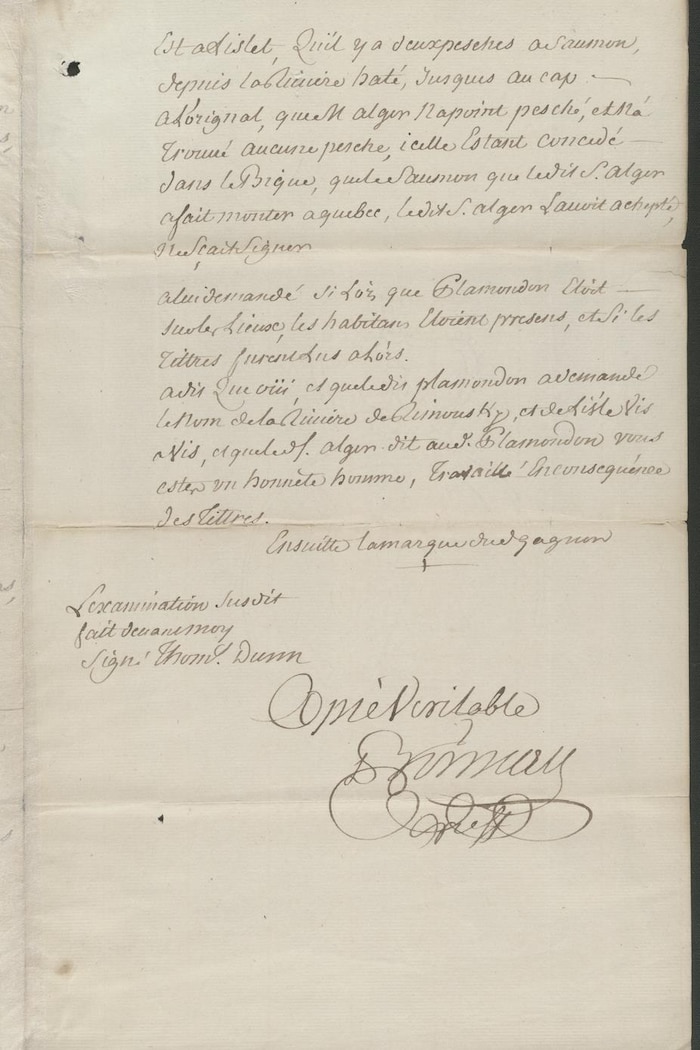 Est a Lislet, Qu'il y a deux pesches a Saumon,
depuis la Riviere haté, Jusques au cap
a L'orignal, que M alger N'a point pesché, et N'a
Trouvé aucune pesche, icelle Estant concedé
dans le Bique, que le Saumon que le dit S. alger
a fait monter a quebec, le dit S. alger L'avoit achepté,
Ne sçait signer
a lui demandé si Lórs que Plamondon Etoit
sur les Lieux, les habitans Etoient presens, et Si les
Tittres furent Lus alórs.
a dit Que oüi, et que le dit plamondon a demandé
le Nom de la Riviere de Rimousky, et de L'isle Vis
a Vis, et que le d. S. alger dit aud. Plamondon vous
estes un honnète homme, Travaillé En consequénce
des Tittres.
Ensuitte la marque dud gagnon
+
L'examination susdit
fait devant moy
Signé Thom.s Dunn
Copié Veritable